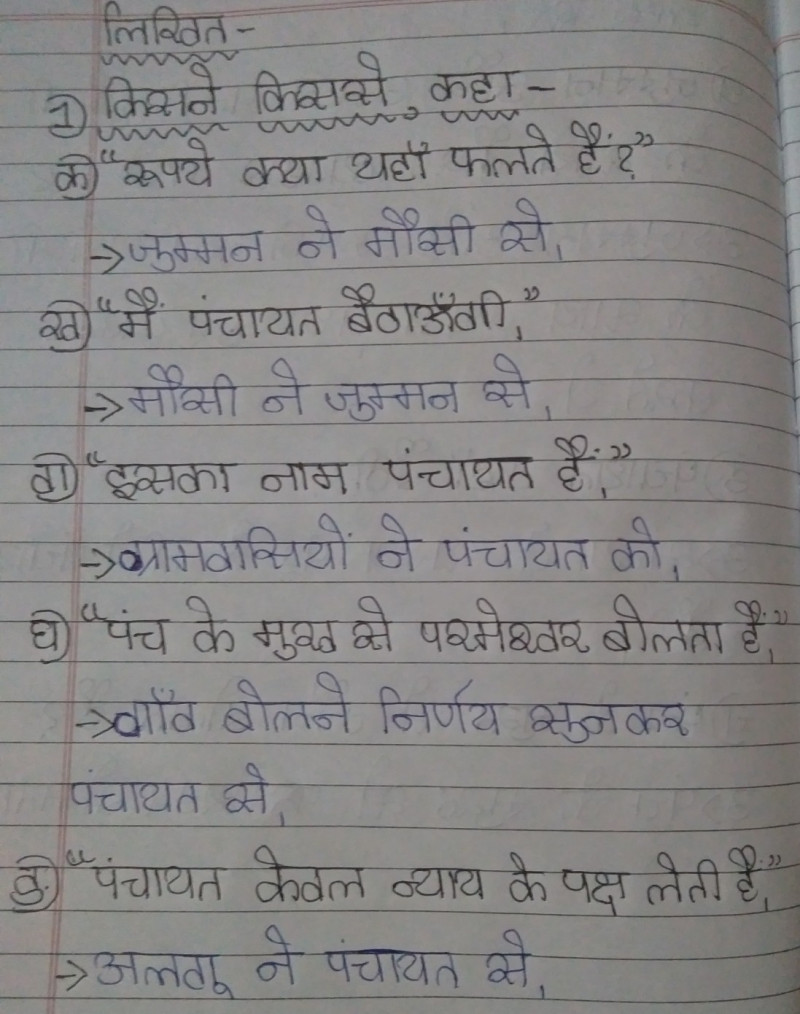 लिखित-
1) किसने किससे कहा-
क) “रूपये क्या यहाँ फलते हैं?”
→जुम्मन ने मौसी से,
ख) “मैं पंचायत बैठाऊँगी,”
→मौसी ने जुम्मन से,
ग) “इसका नाम पंचायत हैं,”
→ग्रामवासियों ने पंचायत को,
घ) “पंच के मुख से परमेश्वर बोलता हैं,”
→गाँव बोलने निर्णय सुनकर
पंचायत से,
ङ) “पंचायत केवल न्याय के पक्ष लेती हैं,”
→अलगू ने पंचायत से,